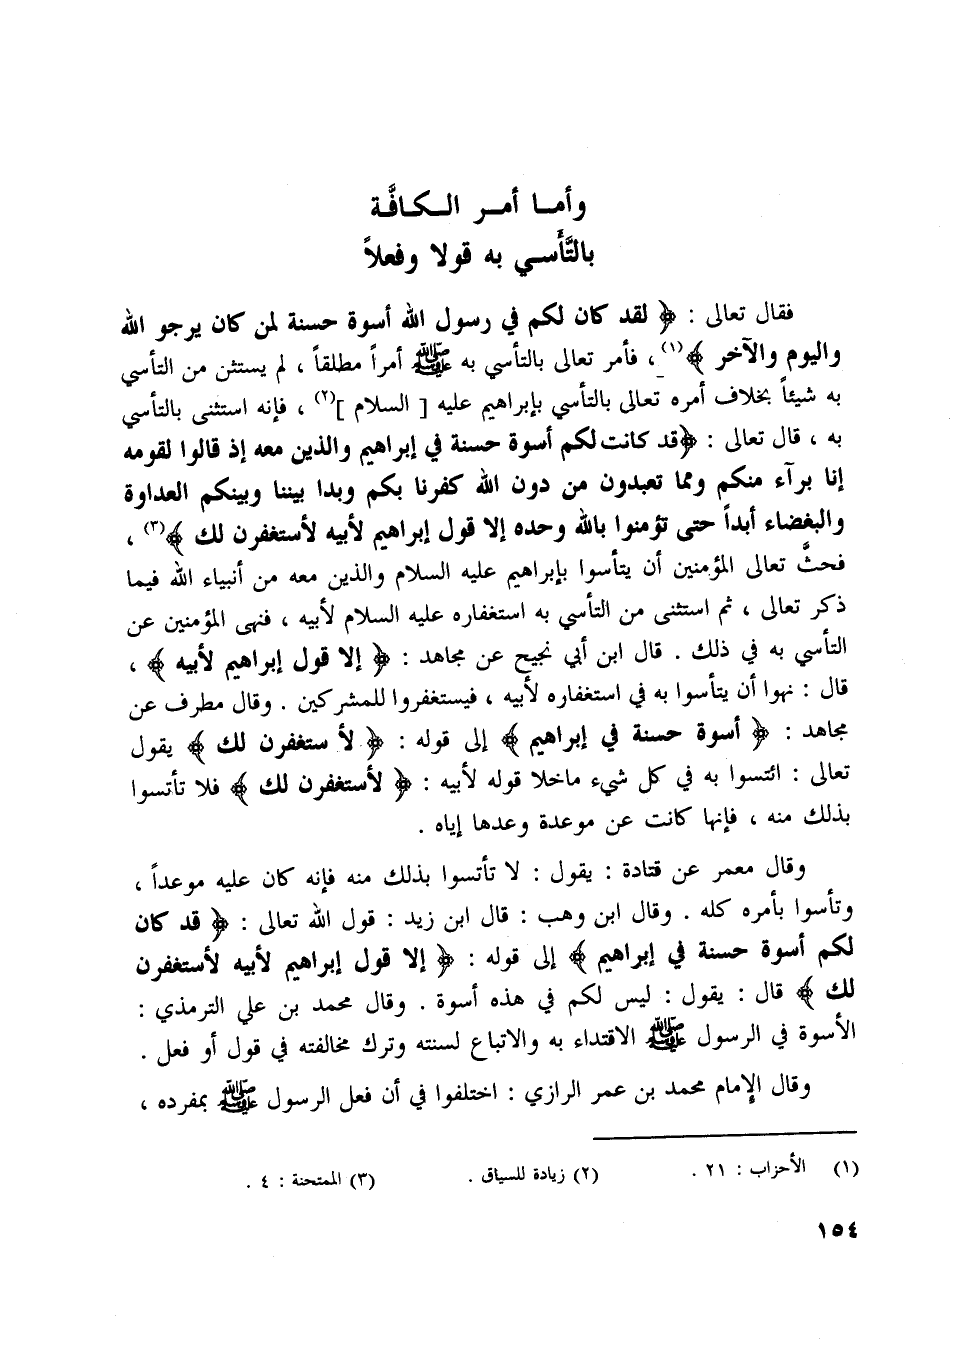 وأمـا أمـر الـكـافَّـة
بالتَّأَسـي به قولا وفعلاً
فقال تعالى : ﴿ لقد كان لكم في رسول الله أسوة حسنة لمن كان يرجو الله
واليوم والآخر ﴾(١) ، فأمر تعالى بالتأسي به ﷺ أمراً مطلقاً ، لم يستثن من التأسي
به شيئاً بخلاف أمره تعالى بالتأسي بإبراهيم عليه [ السلام ](٢) ، فإنه استثنى بالتأسي
به ، قال تعالى : ﴿قد كانت لكم أسوة حسنة في إبراهيم والذين معه إذ قالوا لقومه
إنا برآء منكم ومما تعبدون من دون الله كفرنا بكم وبدا بيننا وبينكم العداوة
والبغضاء أبداً حتى تؤمنوا بالله وحده إلا قول إبراهيم لأبيه لأستغفرن لك ﴾(٣) ،
فحثَّ تعالى المؤمنين أن يتأسوا بإبراهيم عليه السلام والذين معه من أنبياء الله فيما
ذكر تعالى ، ثم استثنى من التأسي به استغفاره عليه السلام لأبيه ، فنهى المؤمنين عن
التأسي به في ذلك . قال ابن أبي نجيح عن مجاهد : ﴿ إلا قول إبراهيم لأبيه ﴾ ،
قال : نهوا أن يتأسوا به في استغفاره لأبيه ، فيستغفروا للمشركين . وقال مطرف عن
مجاهد : ﴿ أسوة حسنة في إبراهيم ﴾ إلى قوله : ﴿ لأ ستغفرن لك ﴾ يقول
تعالى : ائتسوا به في كل شيء ماخلا قوله لأبيه : ﴿ لأستغفرن لك ﴾ فلا تأتسوا
بذلك منه ، فإنها كانت عن موعدة وعدها إياه .
وقال معمر عن قتادة : يقول : لا تأتسوا بذلك منه فإنه كان عليه موعداً ،
وتأسوا بأمره كله . وقال ابن وهب : قال ابن زيد : قول الله تعالى : ﴿ قد كان
لكم أسوة حسنة في إبراهيم ﴾ إلى قوله : ﴿ إلا قول إبراهيم لأبيه لأستغفرن
لك ﴾ قال : يقول : ليس لكم في هذه أسوة . وقال محمد بن علي الترمذي :
الأسوة في الرسول ﷺ الاقتداء به والاتباع لسنته وترك مخالفته في قول أو فعل .
وقال الإمام محمد بن عمر الرازي : اختلفوا في أن فعل الرسول ﷺ بمفرده ،
(١) الأحزاب : ٢١ . (٢) زيادة للسياق . (٣) الممتحنة : ٤ .
١٥٤